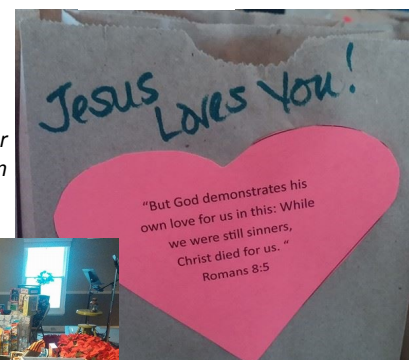 Jesus
Loves You!
r
n
"But God demonstrates his
own love for us in this: While
we were still sinners,
Christ died for us. "
Romans 8:5